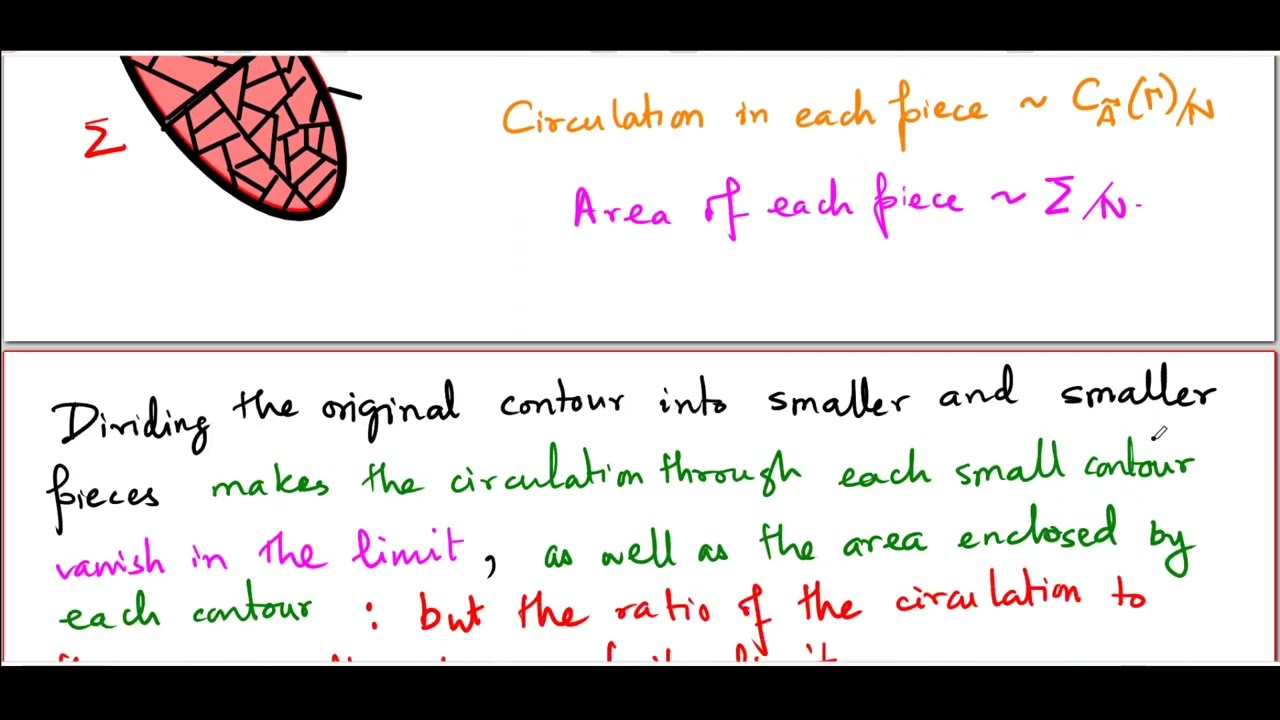 Σ
Circulation in each piece ~ C_Ã(Γ)/N
Area of each piece ~ Σ/N.
Dividing the original contour into smaller and smaller
pieces makes the circulation through each small contour
vanish in the limit, as well as the area enclosed by
each contour : but the ratio of the circulation to